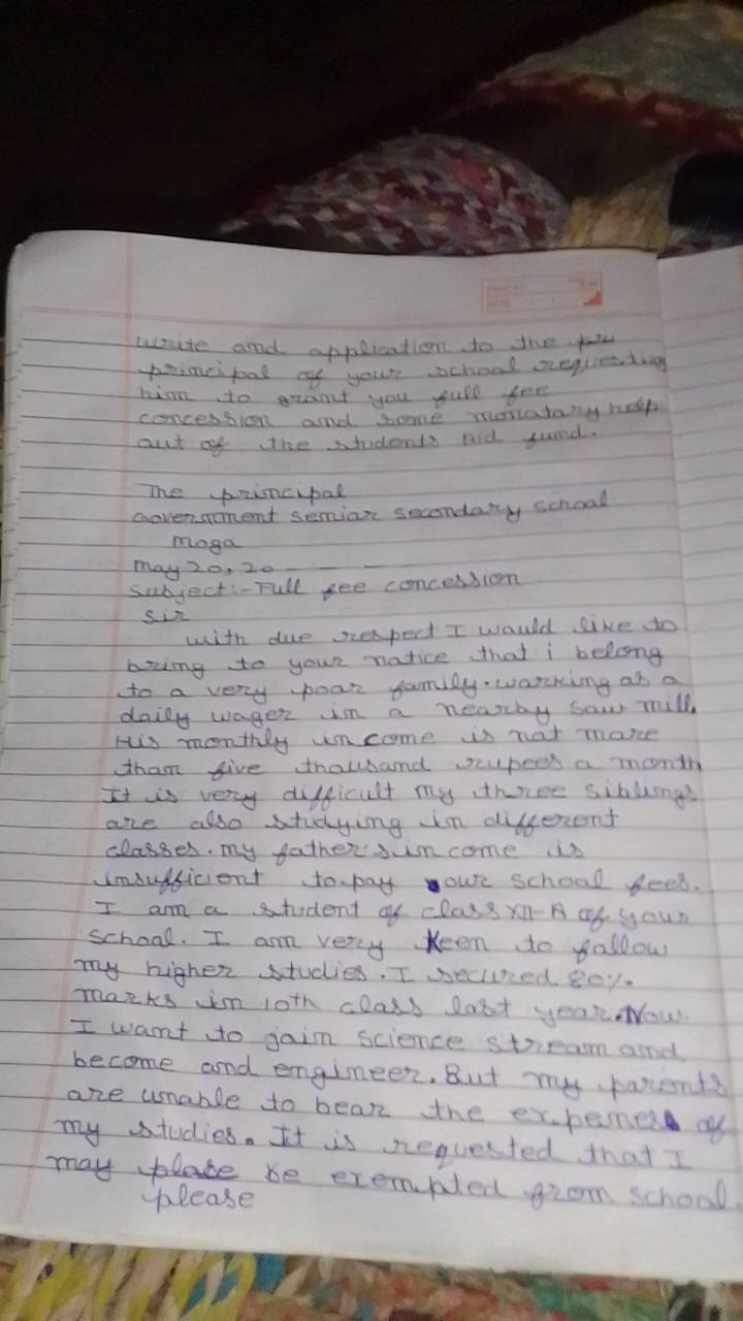 write and application to the pri
principal of your school requesting
him to grant you full fee
concession and some monatary help
out of the students Aid fund.
The principal
Government seniar secondary school
Moga
May 20, 20 - - - -
Subject:- Full fee concession
Sir
with due respect I would like to
bring to your natice that i belong
to a very poar family. warking as a
daily wager in a nearby saw mill.
His monthly income is nat mare
than five thausand rupees a month
It is very difficult my three siblings
are also studying in different
classes. my father's income is
insufficient to pay our school fees.
I am a student of class XII-A of your
school. I am very keen to fallow
my higher studies. I secured 80%.
marks in 10th class last year. Now
I want to gain science stream and
become and engineer. But my parents
are unable to bear the of
my studies. It is requested that I
may place be exempted from school.
please